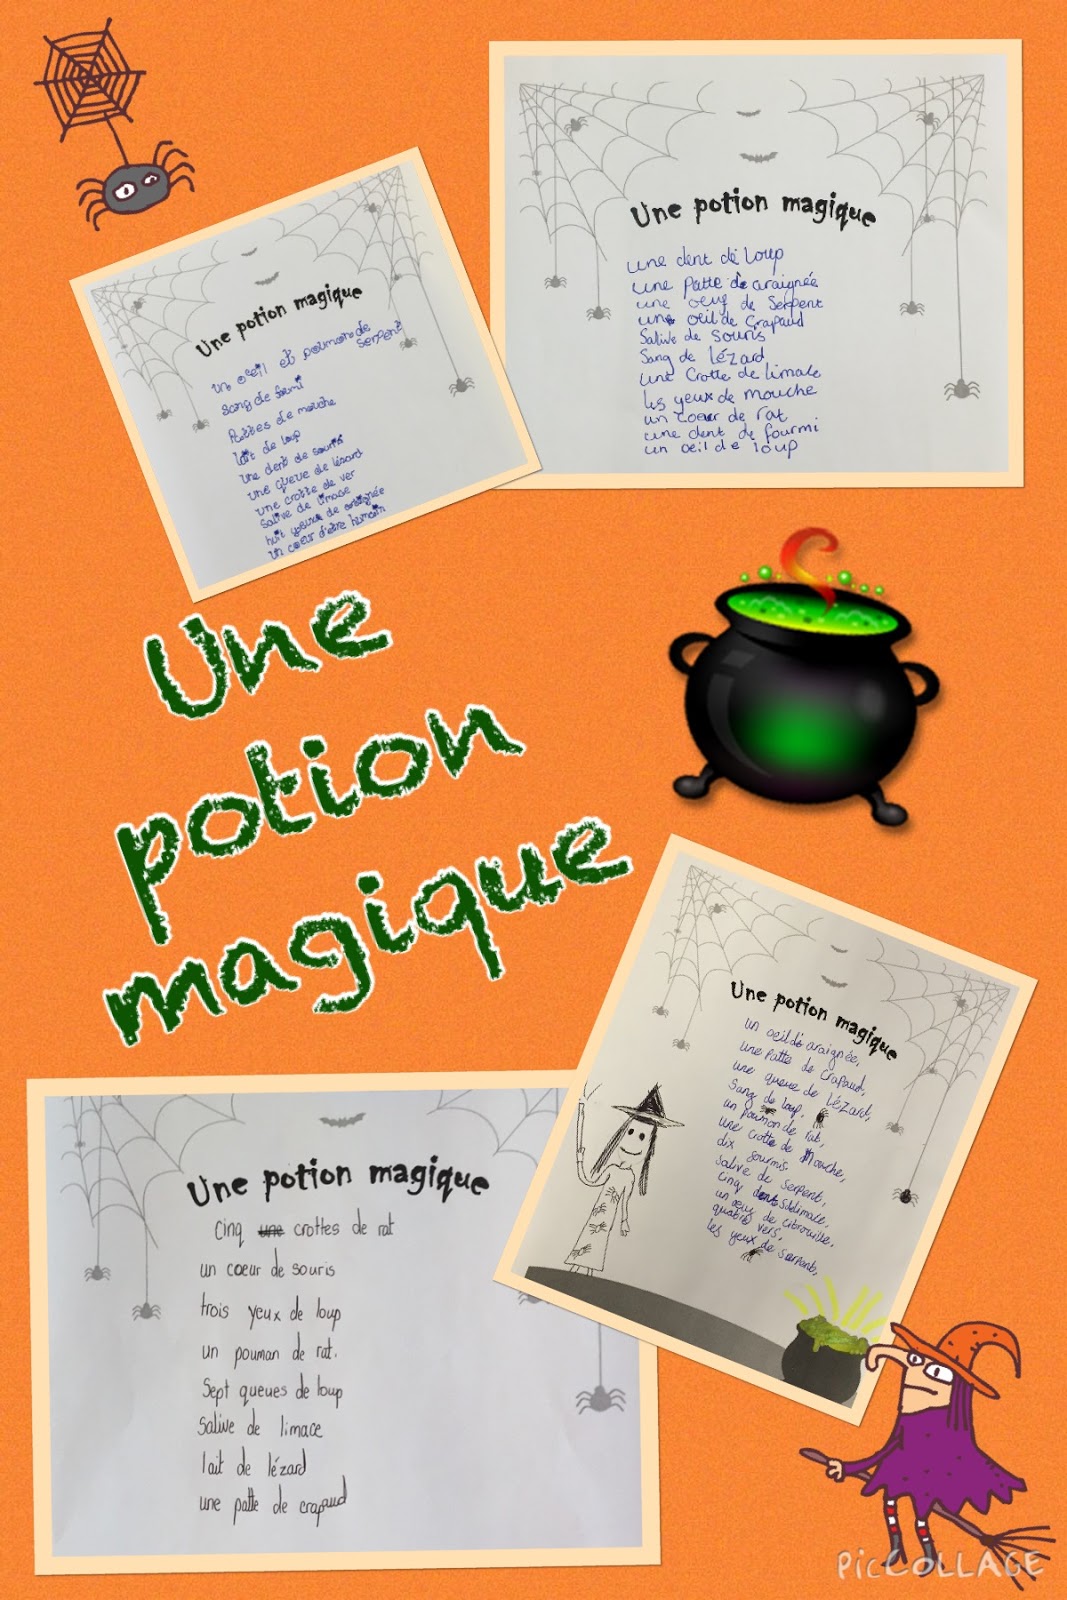 Une potion magique
un oeil et poumon de
serpent
Sang de
Pattes de mouche
lait de loup
une dent de souris
une queue de lézard
une crotte de ver
Salive de limace
huit yeux de araignée
un coeur d'être humain
Une potion magique
une dent de loup
une patte de araignée
une oeuf de Serpent
une oeil de Crapaud
Salive de souris
Sang de lézard
une Crotte de limace
les yeux de mouche
un coeur de rat
une dent de fourmi
un oeil de loup
Une
potion
magique
Une potion magique
un oeil de araignée,
une patte de crapaud,
une queue de lézard,
Sang de loup,
un poumon de rat,
une crotte de Mouche,
dix fourmis
salive de serpent,
cinq
un de citrouille,
quatre vers,
les yeux de serpent,
Une potion magique
Cinq une crottes de rat
un coeur de souris
trois yeux de loup
un pouman de rat.
Sept queues de loup
Salive de limace
lait de lézard
une patte de crapaud
PICCOLLAGE